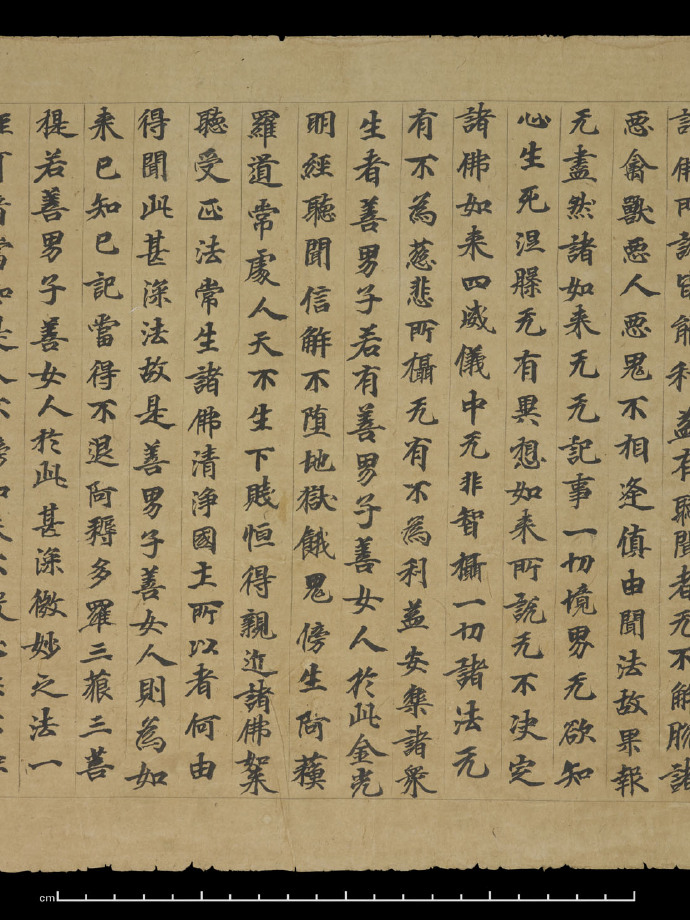 諸佛所說皆能利益有聽聞者无不解脫諸
惡禽獸惡人惡鬼不相逢值由聞法故果報
无盡然諸如来无无記事一切境界无欲知
心生死涅槃无有異想如来所說无不决定
諸佛如来四威儀中无非智攝一切諸法无
有不為慈悲所攝无有不為利益安樂諸衆
生者善男子若有善男子善女人於此金光
明經聽聞信解不墮地獄餓鬼傍生阿蘇
羅道常處人天不生下賤恒得親近諸佛如来
聽受正法常生諸佛清淨國土所以者何由
得聞此甚深法故是善男子善女人則為如
来已知已記當得不退阿耨多羅三藐三菩
提若善男子善女人於此甚深微妙之法一
cm